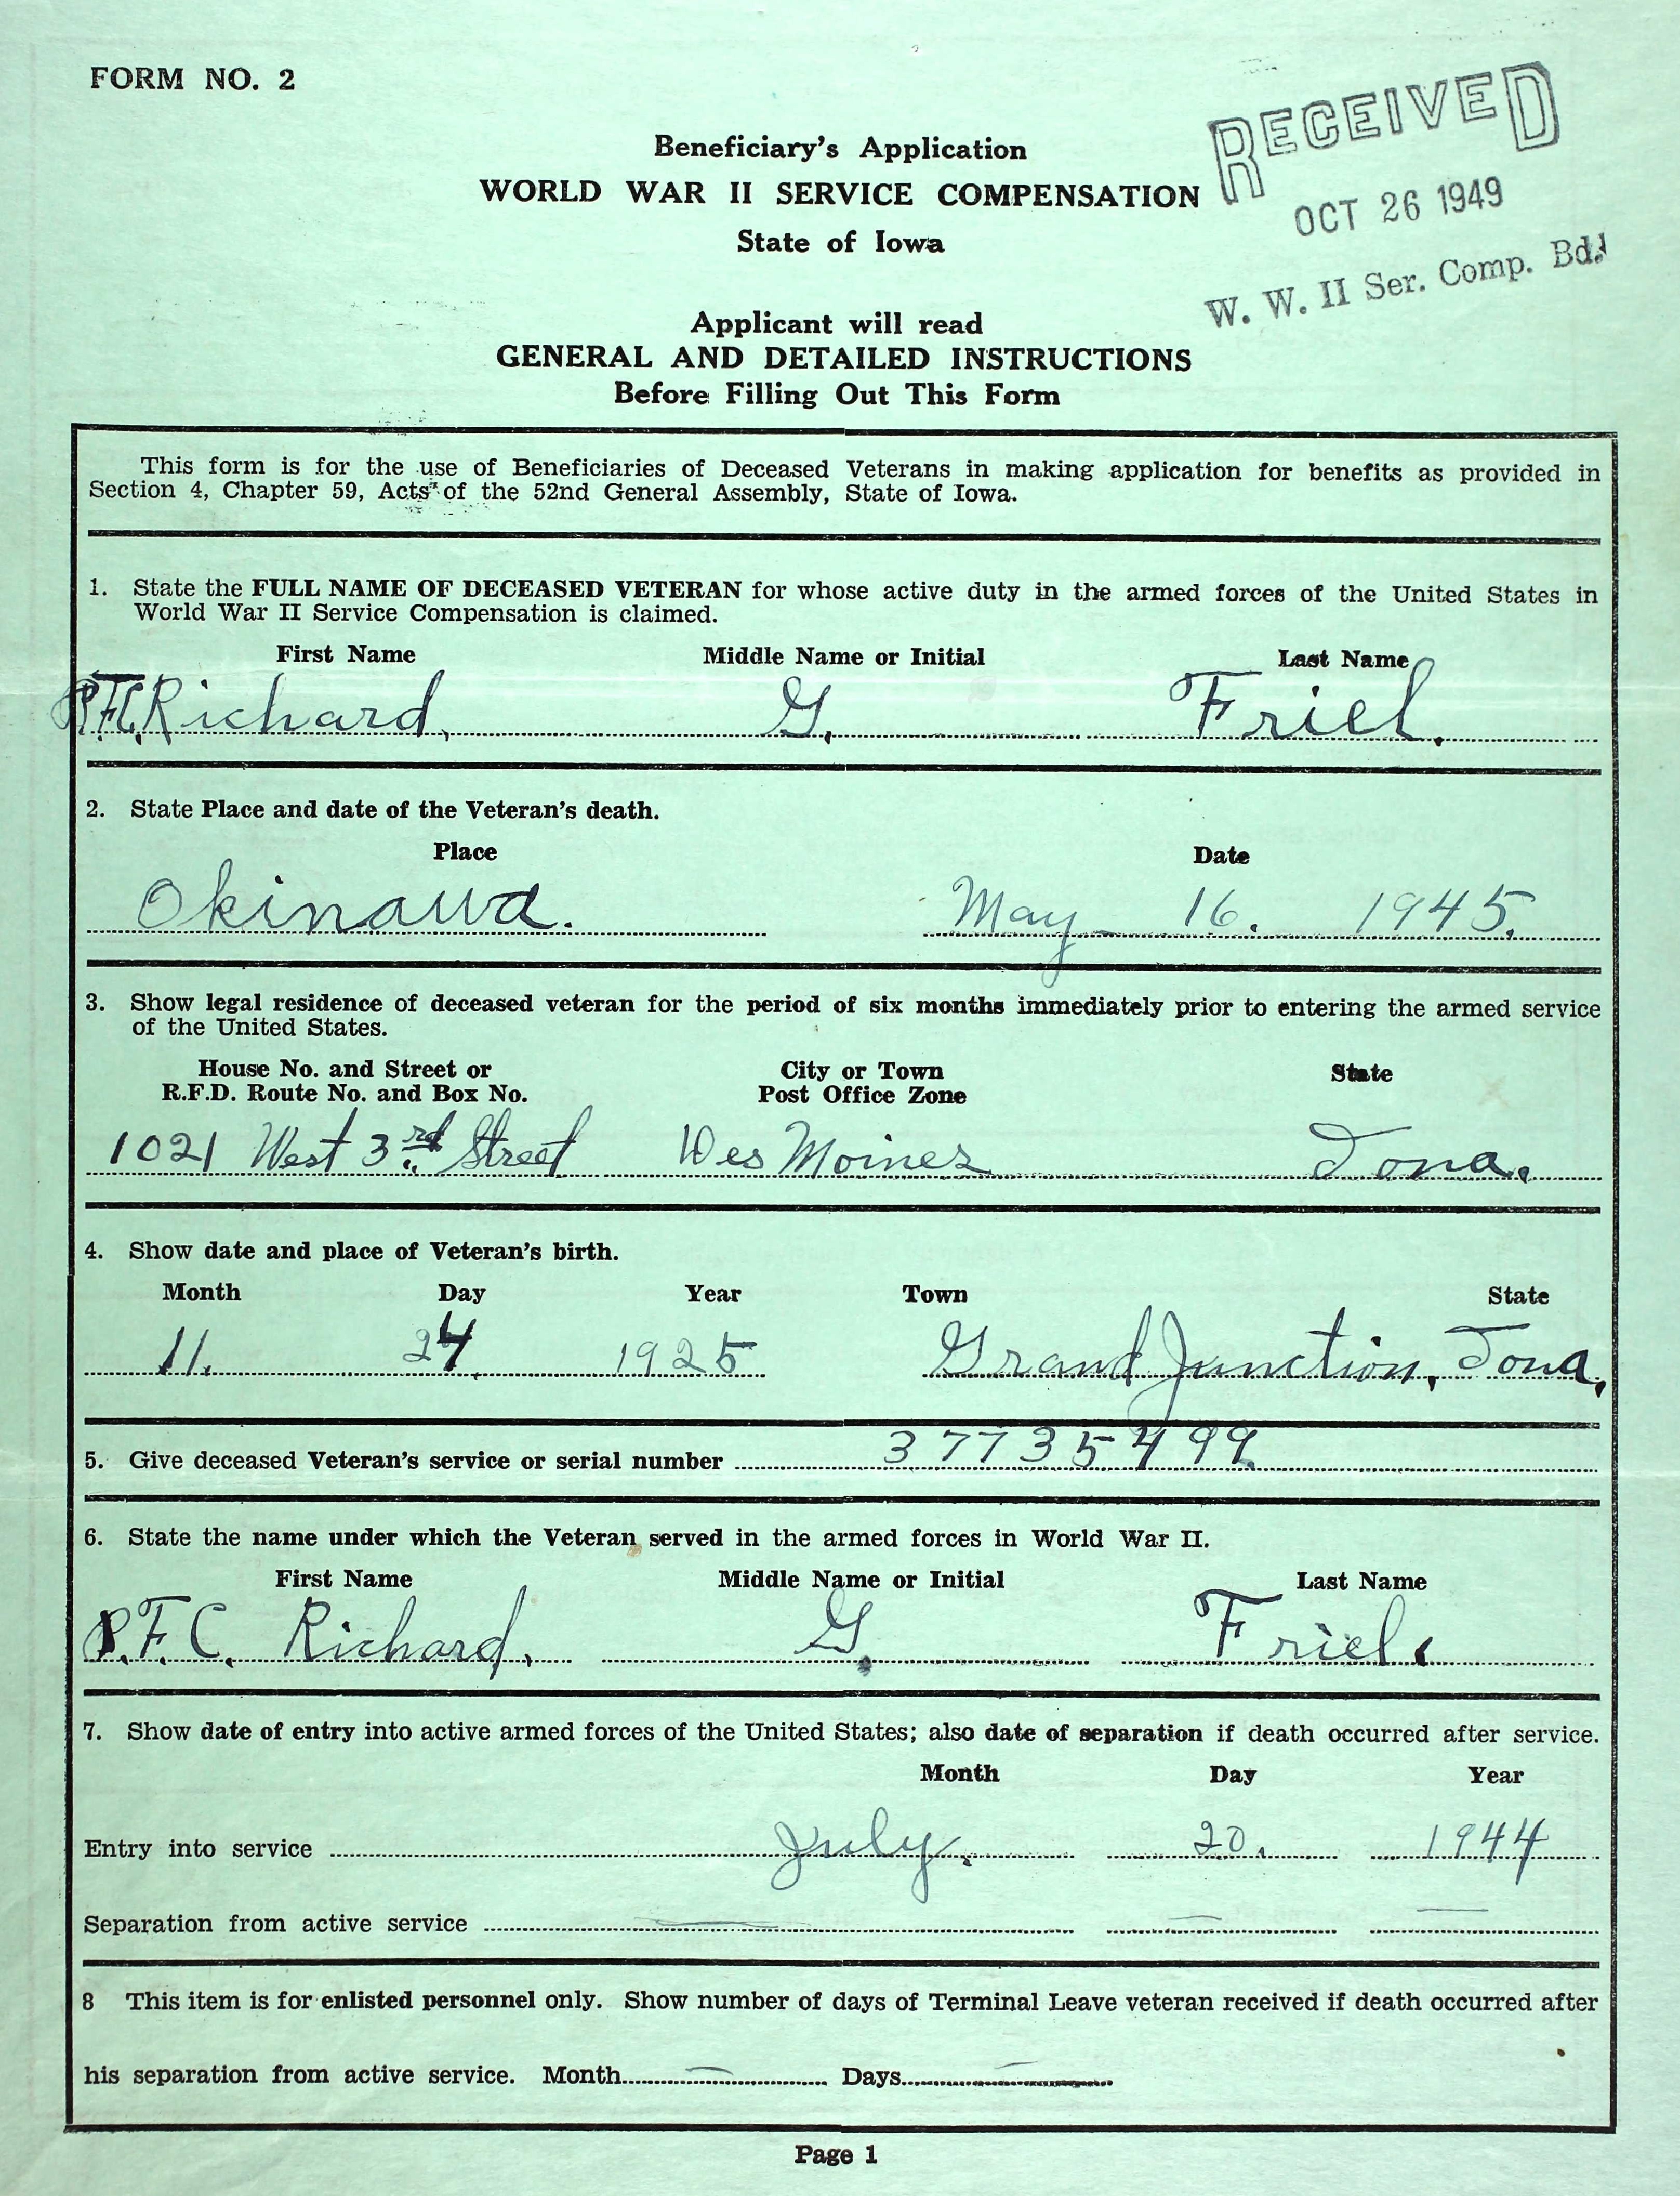 FORM NO. 2
RECEIVED
OCT 26 1949
W. W. II Ser. Comp. Bd.
Beneficiary's Application
WORLD WAR II SERVICE COMPENSATION
State of Iowa
Applicant will read
GENERAL AND DETAILED INSTRUCTIONS
Before Filling Out This Form
This form is for the use of Beneficiaries of Deceased Veterans in making application for benefits as provided in
Section 4, Chapter 59, Acts of the 52nd General Assembly, State of Iowa.
1. State the FULL NAME OF DECEASED VETERAN for whose active duty in the armed forces of the United States in
World War II Service Compensation is claimed.
First Name Middle Name or Initial Last Name
P.F.C. Richard. G. Friel.
2. State Place and date of the Veteran's death.
Place Date
Okinawa. May 16. 1945.
3. Show legal residence of deceased veteran for the period of six months immediately prior to entering the armed service
of the United States.
House No. and Street or City or Town State
R.F.D. Route No. and Box No. Post Office Zone
1021 West 3rd Street Des Moines Iowa.
4. Show date and place of Veteran's birth.
Month Day Year Town State
11. 24. 1925 Grand Junction, Iowa.
5. Give deceased Veteran's service or serial number 37735499.
6. State the name under which the Veteran served in the armed forces in World War II.
First Name Middle Name or Initial Last Name
P.F.C. Richard. G. Friel.
7. Show date of entry into active armed forces of the United States; also date of separation if death occurred after service.
Month Day Year
Entry into service July. 20. 1944
Separation from active service — — —
8 This item is for enlisted personnel only. Show number of days of Terminal Leave veteran received if death occurred after
his separation from active service. Month — Days —
Page 1